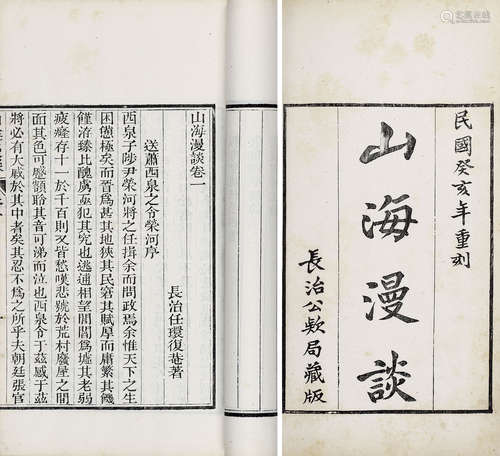 民國癸亥年重刻
山海漫談
長治公款局藏版
山海漫談卷一
長治任環復菴著
送蕭西泉之令榮河序
西泉子陟尹榮河將之任揖余而問政焉余惟天下之生
困憊極矣而晉爲甚其地狹其民窮其賦厚而庸繁其饑
饉洊臻比醜虜亟犯其究也逃逋相望閭閻爲墟其老弱
疲癃存十一於千百則又皆愁嘆悲號於荒村廢屋之間
面其色可蹙額聆其音可涕而泣也西泉令于茲感于茲
將必有大戚於其中者矣其忍不爲之所乎夫朝廷張官